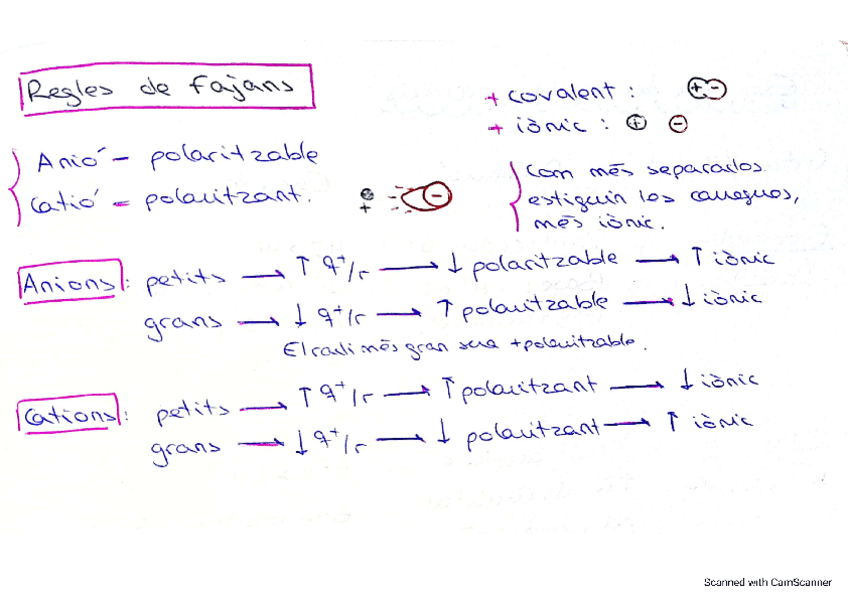 Regles de Fajans
+ covalent : + -
+ iònic : + -
Anió - polaritzable
Catió - polaritzant.
+
-
Com més separados
estiguin les carregues,
més iònic.
Anions: petits → ↑ q+/r → ↓ polaritzable → ↑ iònic
grans → ↓ q+/r → ↑ polaritzable → ↓ iònic
El radi més gran sera + polaritzable.
Cations: petits → ↑ q+/r → ↑ polaritzant → ↓ iònic
grans → ↓ q+/r → ↓ polaritzant → ↑ iònic
Scanned with CamScanner